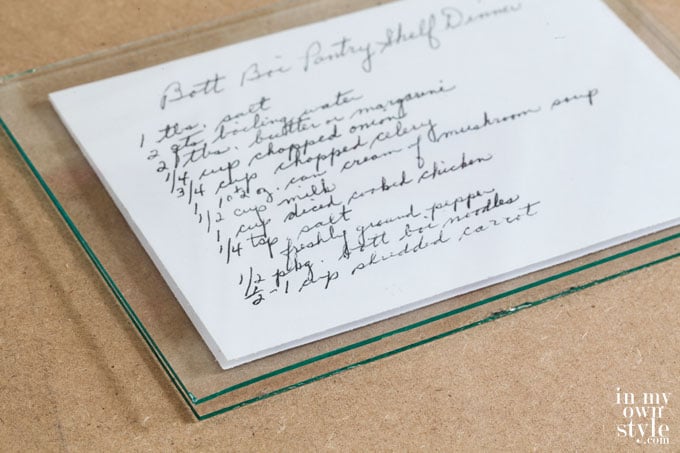 Bott Boi Pantry Shelf Dinner
1 tbs. salt
2 qts boiling water
2 tbs. butter or margarine
1/4 cup chopped onion
3/4 cup chopped celery
1 10½ oz. can cream of mushroom soup
1/2 cup milk
1 cup diced cooked chicken
1/4 tsp salt
freshly ground pepper
1/2 pkg. bott boi noodles
1/2 - 1 cup shredded carrot
in my
own
style.com